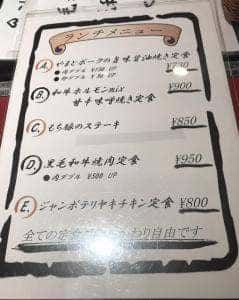 ランチメニュー
A. やまとポークの旨味醤油焼き定食 ¥750
● 肉ダブル ¥350 UP
B. 和牛ホルモンmix ¥900
甘辛味噌焼き定食
C. もち豚のステーキ ¥850
D. 黒毛和牛焼肉定食 ¥950
● 肉ダブル ¥500 UP
E. ジャンボテリヤキチキン定食 ¥800
全ての定食 わり自由です